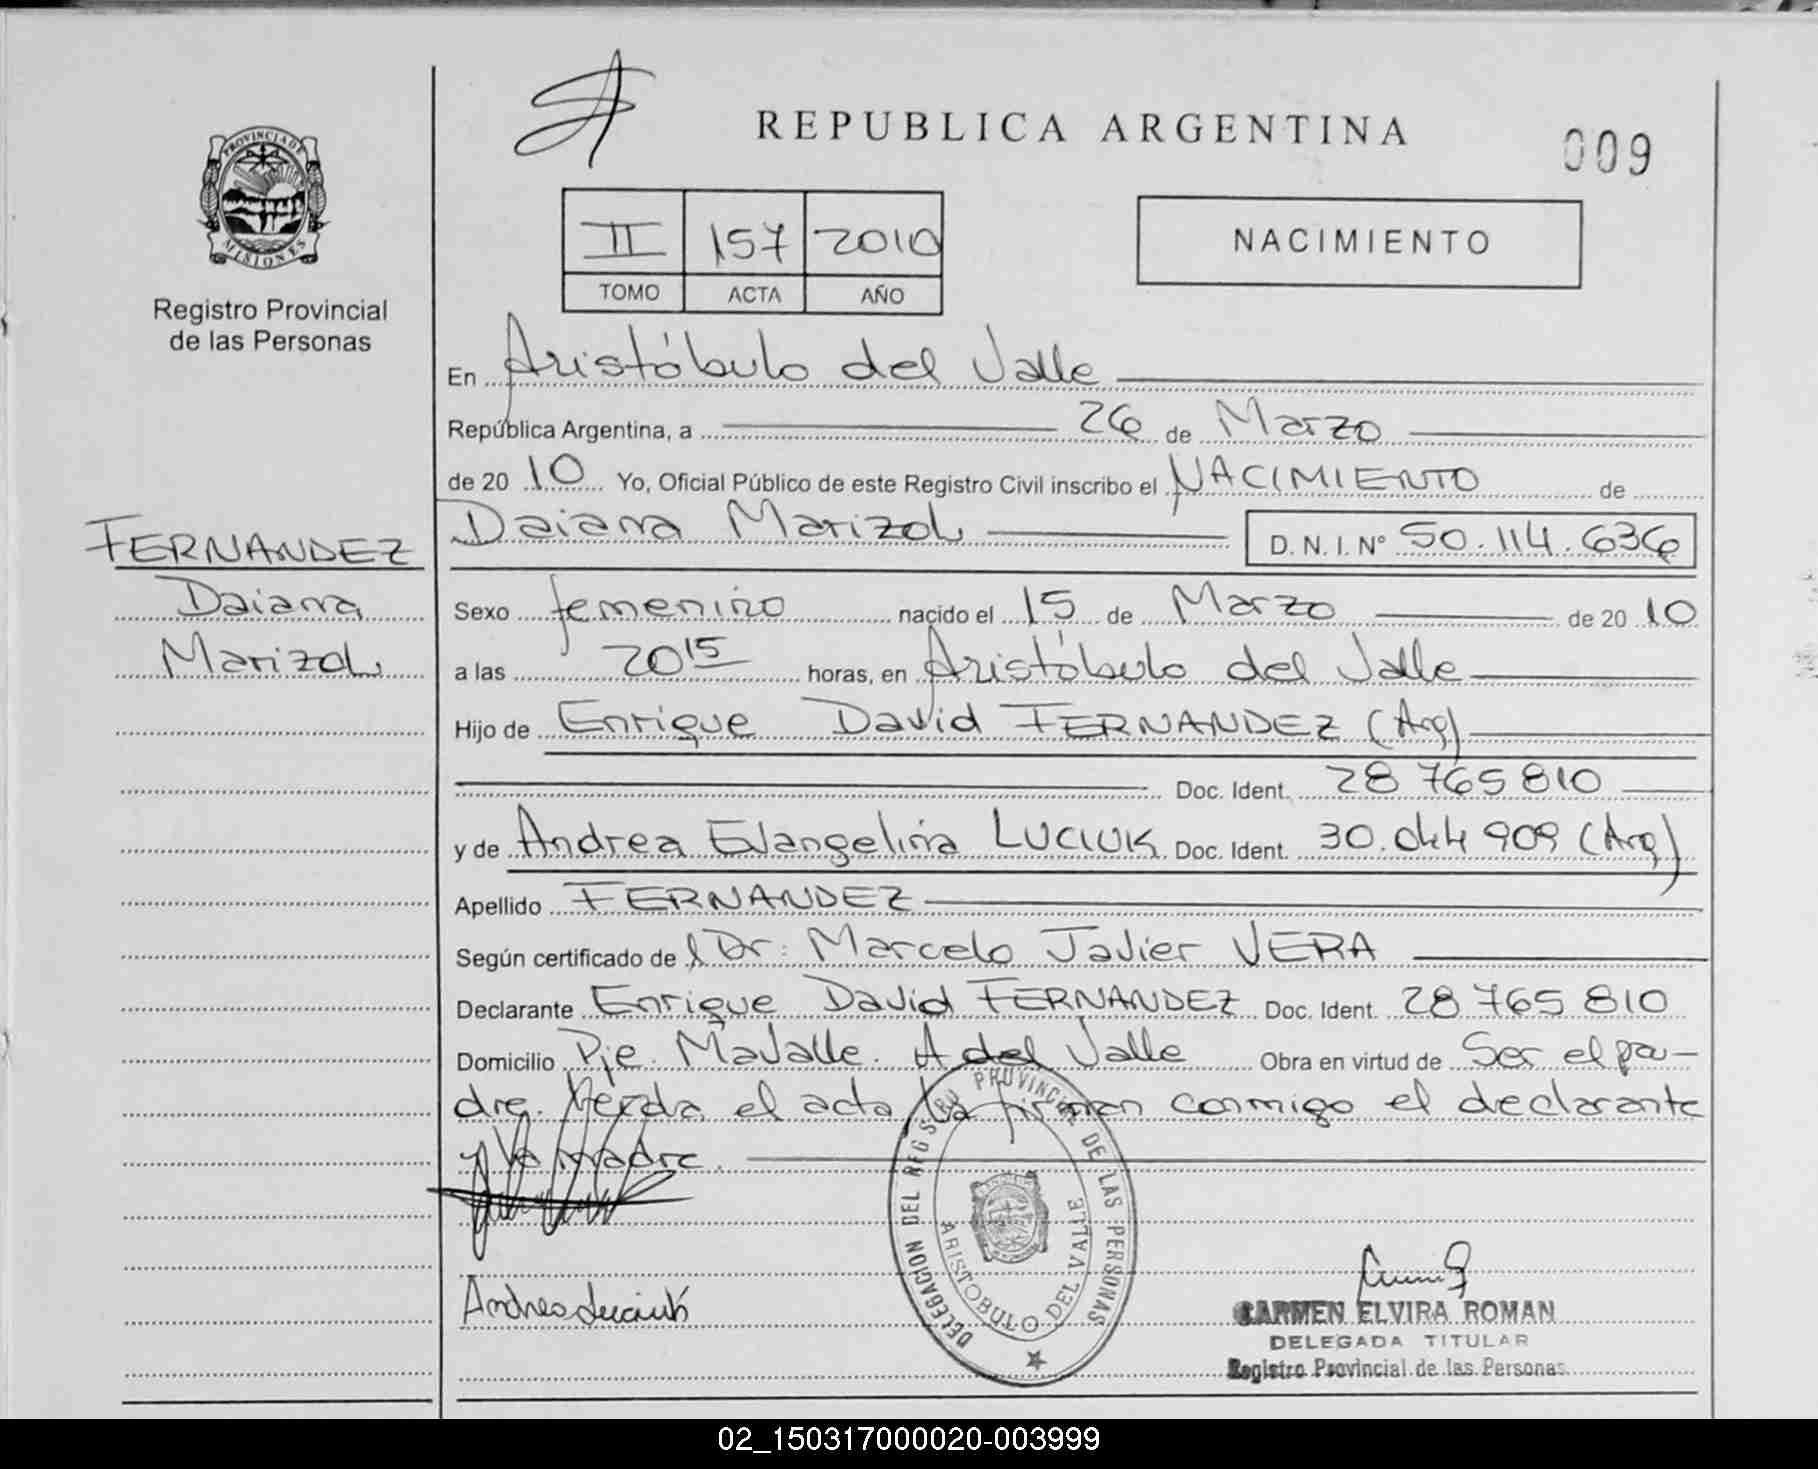 REPUBLICA ARGENTINA
009
PROVINCIA DE MISIONES
Registro Provincial
de las Personas
II 157 2010
TOMO ACTA AÑO
NACIMIENTO
En Aristóbulo del Valle
República Argentina, a 26 de Marzo
de 20 10 Yo, Oficial Público de este Registro Civil inscribo el NACIMIENTO de
Daiana Marizol D. N. I. Nº 50.114.636
FERNANDEZ
Daiana
Marizol
Sexo femenino nacido el 15 de Marzo de 20 10
a las 20 15 horas, en Aristóbulo del Valle
Hijo de Enrique David FERNANDEZ (Arg)
Doc. Ident. 28 765 810
y de Andrea Evangelina LUCIUK Doc. Ident. 30.044 909 (Arg)
Apellido FERNANDEZ
Según certificado de l Dr: Marcelo Javier VERA
Declarante Enrique David FERNANDEZ Doc. Ident. 28 765 810
Domicilio Pje. Mavalle. A del Valle Obra en virtud de Ser el pa-
dre. Leida el acta la firman conmigo el declarante
y la madre.
DELEGACION DEL REGISTRO PROVINCIAL DE LAS PERSONAS
ARISTOBULO DEL VALLE
Andrea Luciuk
CARMEN ELVIRA ROMAN
DELEGADA TITULAR
Registro Provincial de las Personas
02_150317000020-003999